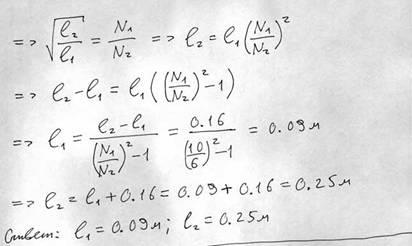 => √(ℓ₂/ℓ₁) = N₁/N₂ => ℓ₂ = ℓ₁(N₁/N₂)²
=> ℓ₂ - ℓ₁ = ℓ₁((N₁/N₂)² - 1)
=> ℓ₁ = (ℓ₂ - ℓ₁)/((N₁/N₂)² - 1) = 0.16/((10/6)² - 1) = 0.09 м
=> ℓ₂ = ℓ₁ + 0.16 = 0.09 + 0.16 = 0.25 м
Ответ: ℓ₁ = 0.09 м; ℓ₂ = 0.25 м